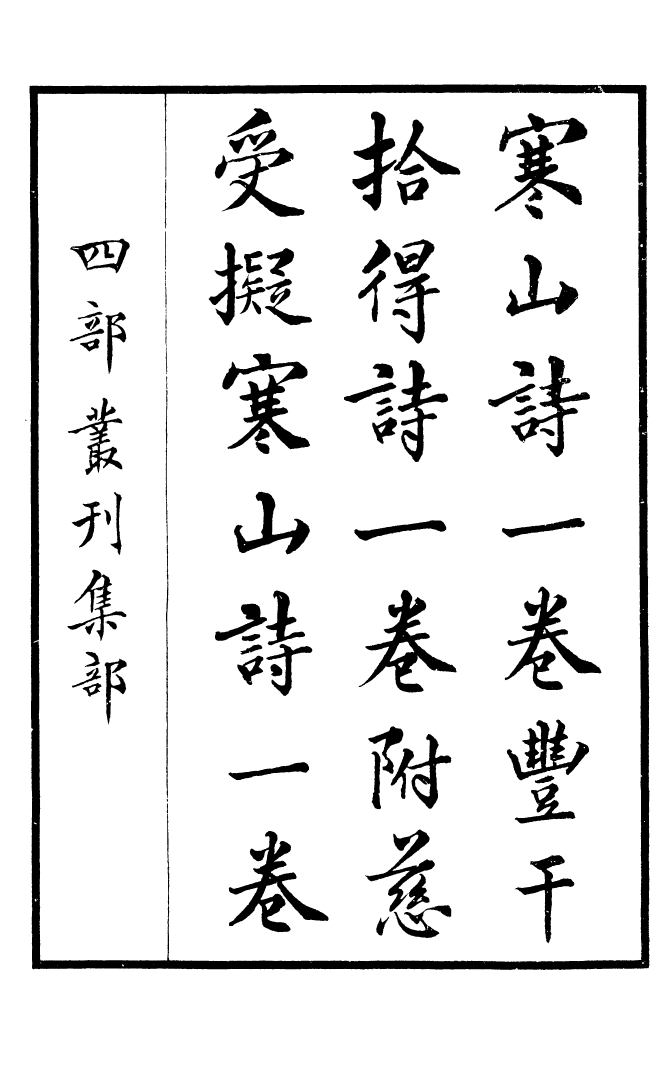 寒山詩一卷豐干
拾得詩一卷附慈
受擬寒山詩一卷
四部叢刊集部